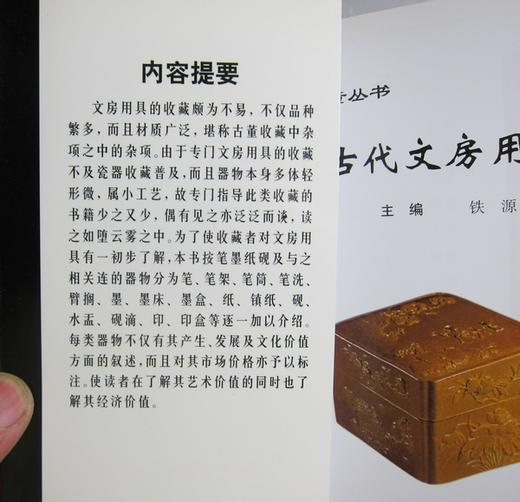 内容提要
文房用具的收藏颇为不易，不仅品种
繁多，而且材质广泛，堪称古董收藏中杂
项之中的杂项。由于专门文房用具的收藏
不及瓷器收藏普及，而且器物本身多体轻
形微，属小工艺，故专门指导此类收藏的
书籍少之又少，偶有见之亦泛泛而谈，读
之如堕云雾之中。为了使收藏者对文房用
具有一初步了解，本书按笔墨纸砚及与之
相关连的器物分为笔、笔架、笔筒、笔洗、
臂搁、墨、墨床、墨盒、纸、镇纸、砚、
水盂、砚滴、印、印盒等逐一加以介绍。
每类器物不仅有其产生、发展及文化价值
方面的叙述，而且对其市场价格亦予以标
注。使读者在了解其艺术价值的同时也了
解其经济价值。
丛书
古代文房用
主编 铁源